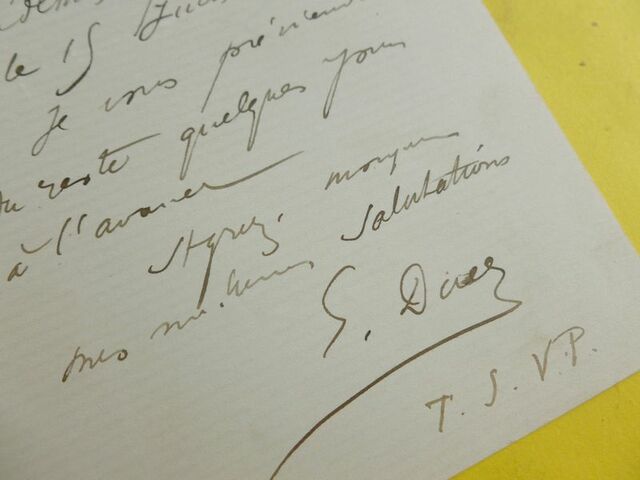 le 15 Juin
Je vous préviendrai
du reste quelques jours
à l'avance
Agréez, monsieur
mes meilleures salutations
T. S. V. P.